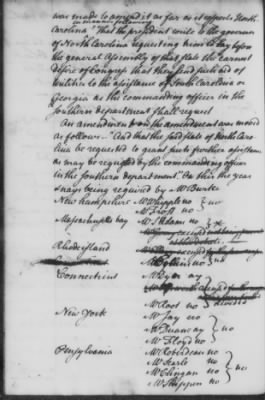 was made to amend it as far as it respects North
Carolina "That the president write to the governor
of North Carolina requesting him to lay before
the general Assembly of that state the earnest
desire of Congress that they send such aid of
militia to the assistance of South Carolina &
Georgia as the commanding officer in the
Southern department shall request
An amendment to the amendment was moved
as follows "And that the said state of North Caro
lina be requested to grant such further assistance
as may be required by the commanding officer
in the southern department." On this the yeas
& nays being required by Mr Burke
New hampshire Mr Whipple no
Mr Frost no
Massachusetts bay Mr S Adams no
Rhode island
Mr Collins no
Connecticut Mr Dyer ay
Mr Root no
New York Mr Jay no
Mr Duane ay no
Mr Floyd no
Pensylvania Mr Roberdeau no
Mr Searle no
Mr Clingan no no
Mr Shippen no